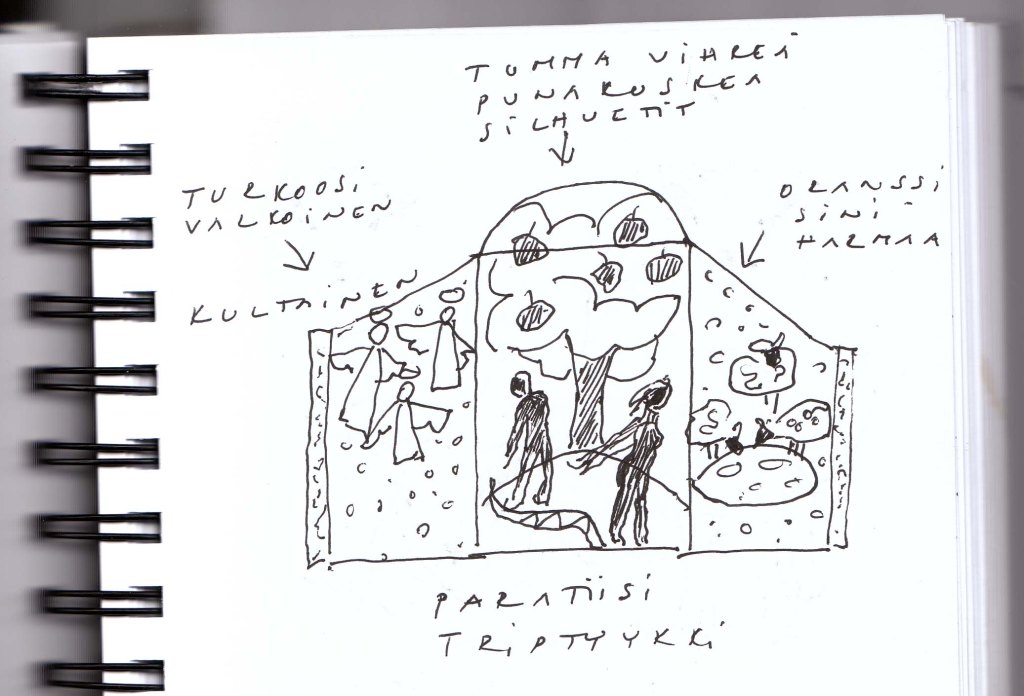 TUMMA VIHREÄ
PUNARUSKEA
SILHUETIT
TURKOOSI
VALKOINEN
KULTAINEN
ORANSSI
SINI
HARMAA
PARATIISI
TRIPTYYKKI